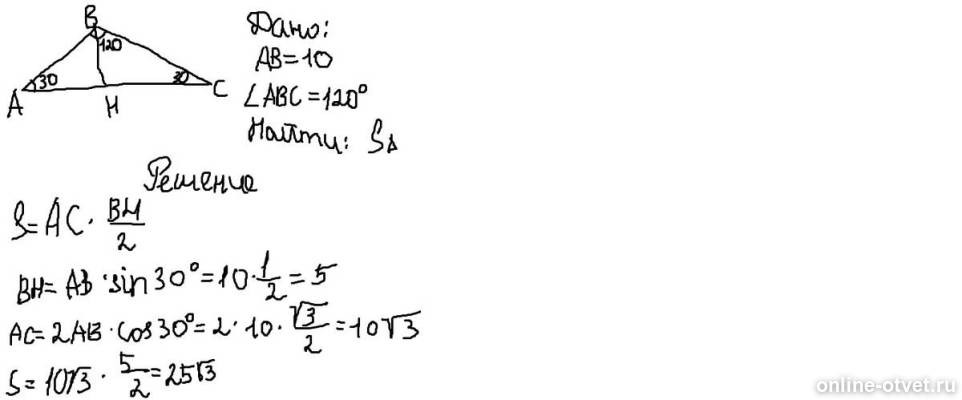 B
120
30
30
A
H
C
Дано:
AB=10
∠ABC=120°
Найти: S△
Решение
S=AC·BH/2
BH=AB·sin30°=10·1/2=5
AC=2AB·cos30°=2·10·√3/2=10√3
S=10√3·5/2=25√3
online-otvet.ru